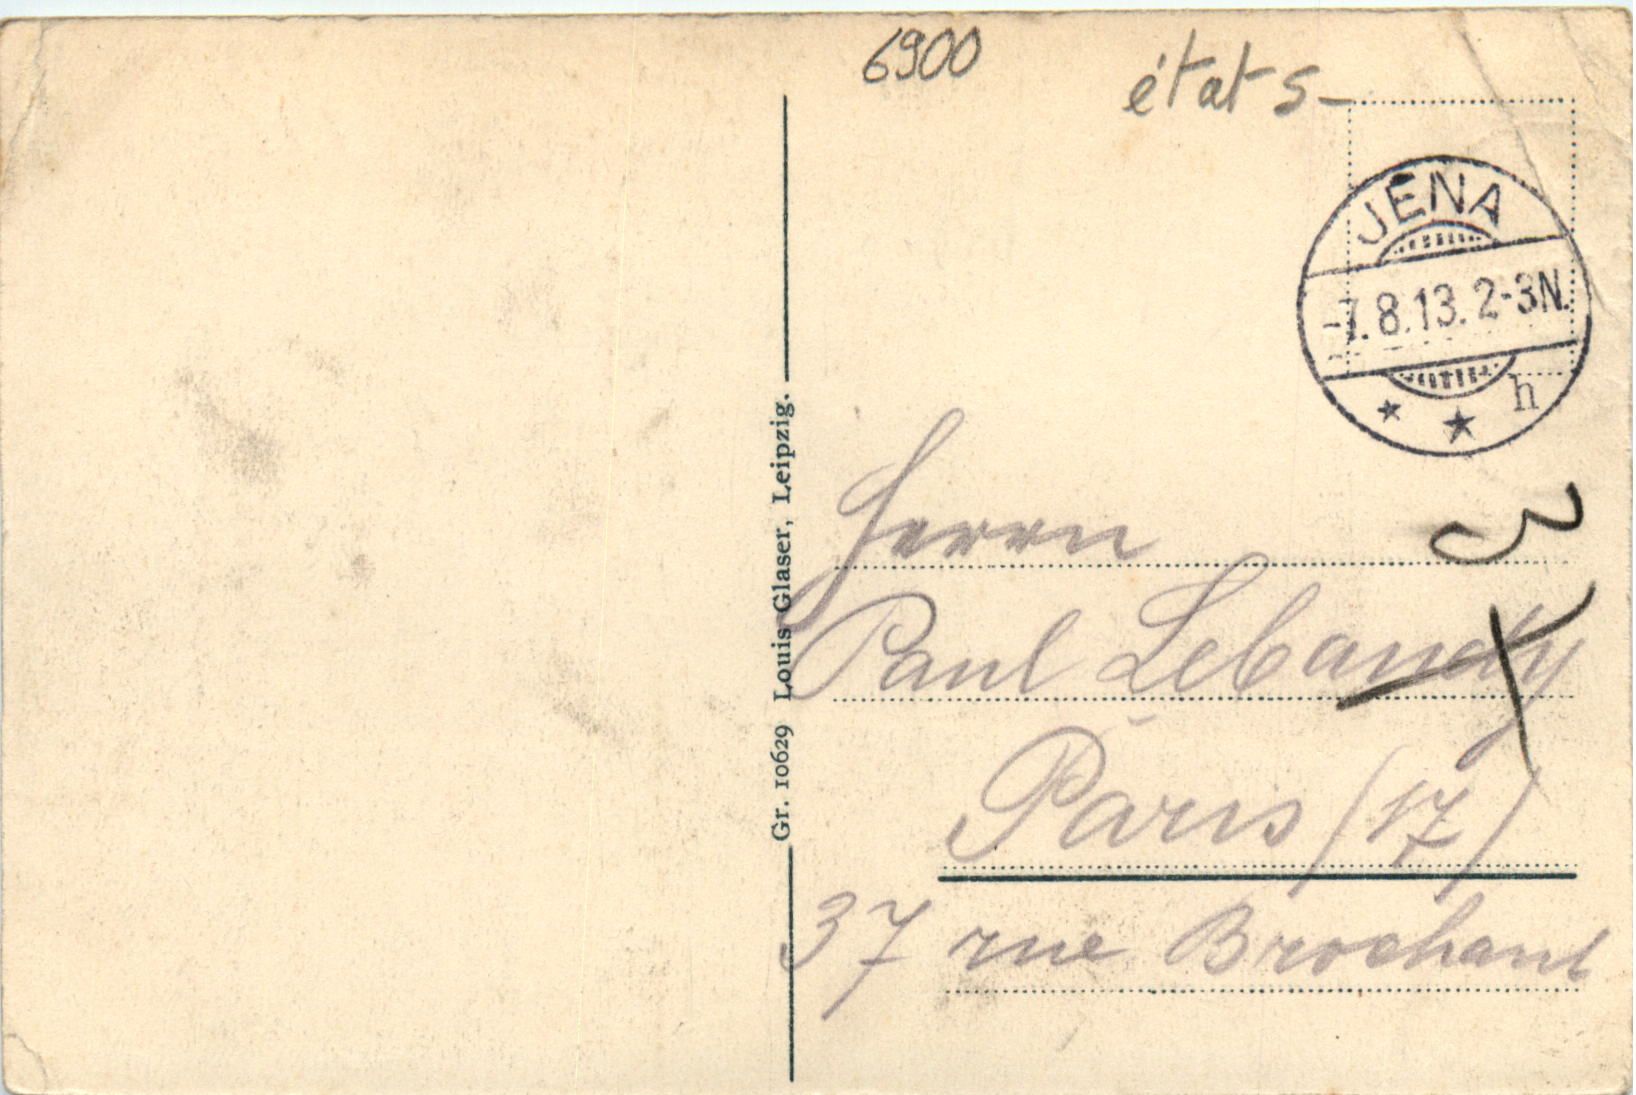 6900
états-
JENA
-7.8.13. 2-3N.
* * h
Gr. 10629 Louis Glaser, Leipzig.
Herrn
Paul Lebaudy
Paris (17)
37 rue Brochant